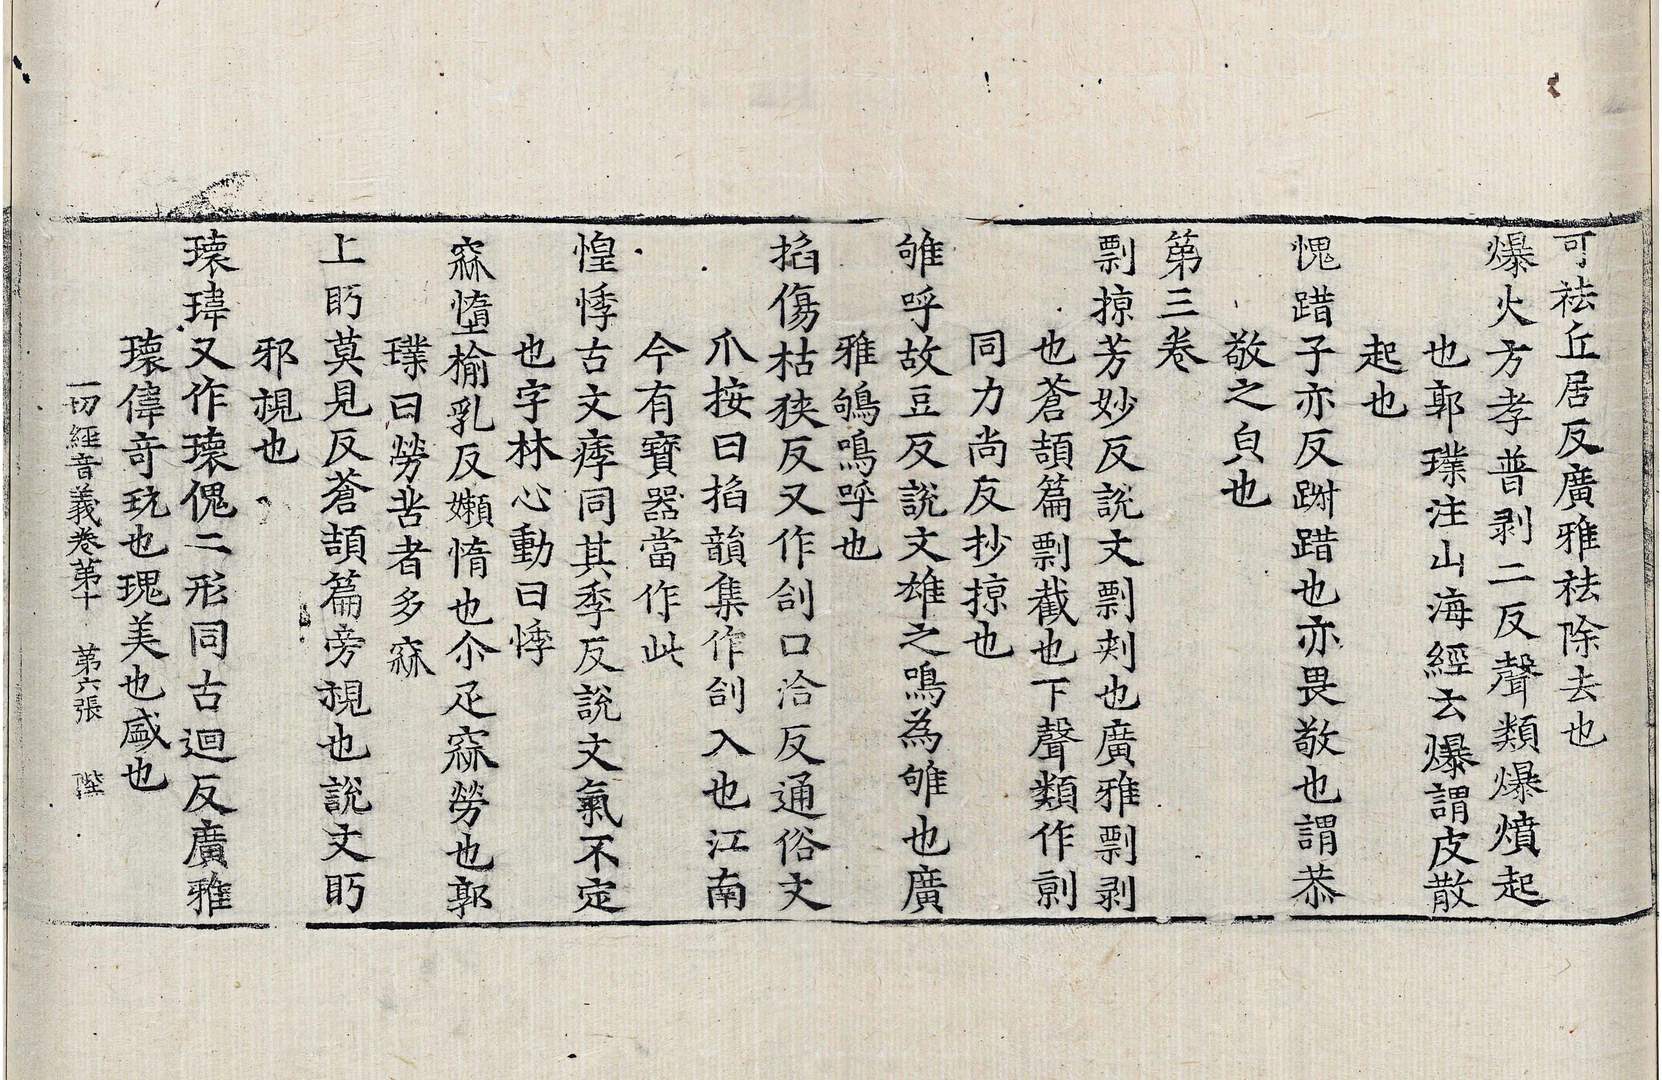 可祛丘居反廣雅祛除去也
爆火方孝普剥二反聲類爆熿起
也郭璞注山海經云爆謂皮散
起也
愧踖子亦反跗踖也亦畏敬也謂恭
敬之皃也
第三卷
剽掠芳妙反說文剽刾也廣雅剽剥
也蒼頡篇剽截也下聲類作剠
同力尚反抄掠也
雊呼故豆反說文雄之鳴為雊也廣
雅鴝鳴呼也
掐傷枯狹反又作㓣口洽反通俗文
爪按曰掐韻集作㓣入也江南
今有寳器當作此
惶悸古文痵同其季反說文氣不定
也字林心動曰悸
㝥墯榆乳反嬾惰也尒疋㝥勞也郭
璞曰勞苦者多㝥
上眄莫見反蒼頡篇旁視也說文眄
邪視也
瓌瑋又作瓌傀二形同古迴反廣雅
瓌偉竒玩也瑰美也盛也
一切經音義卷第十 第六張 陛